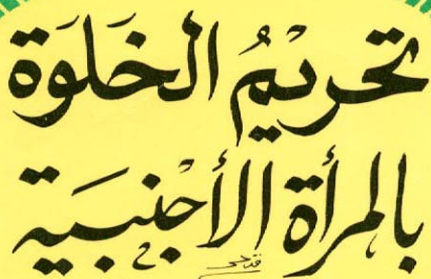 تحريمُ الخَلوَة
بالمرأة الأجنَبية